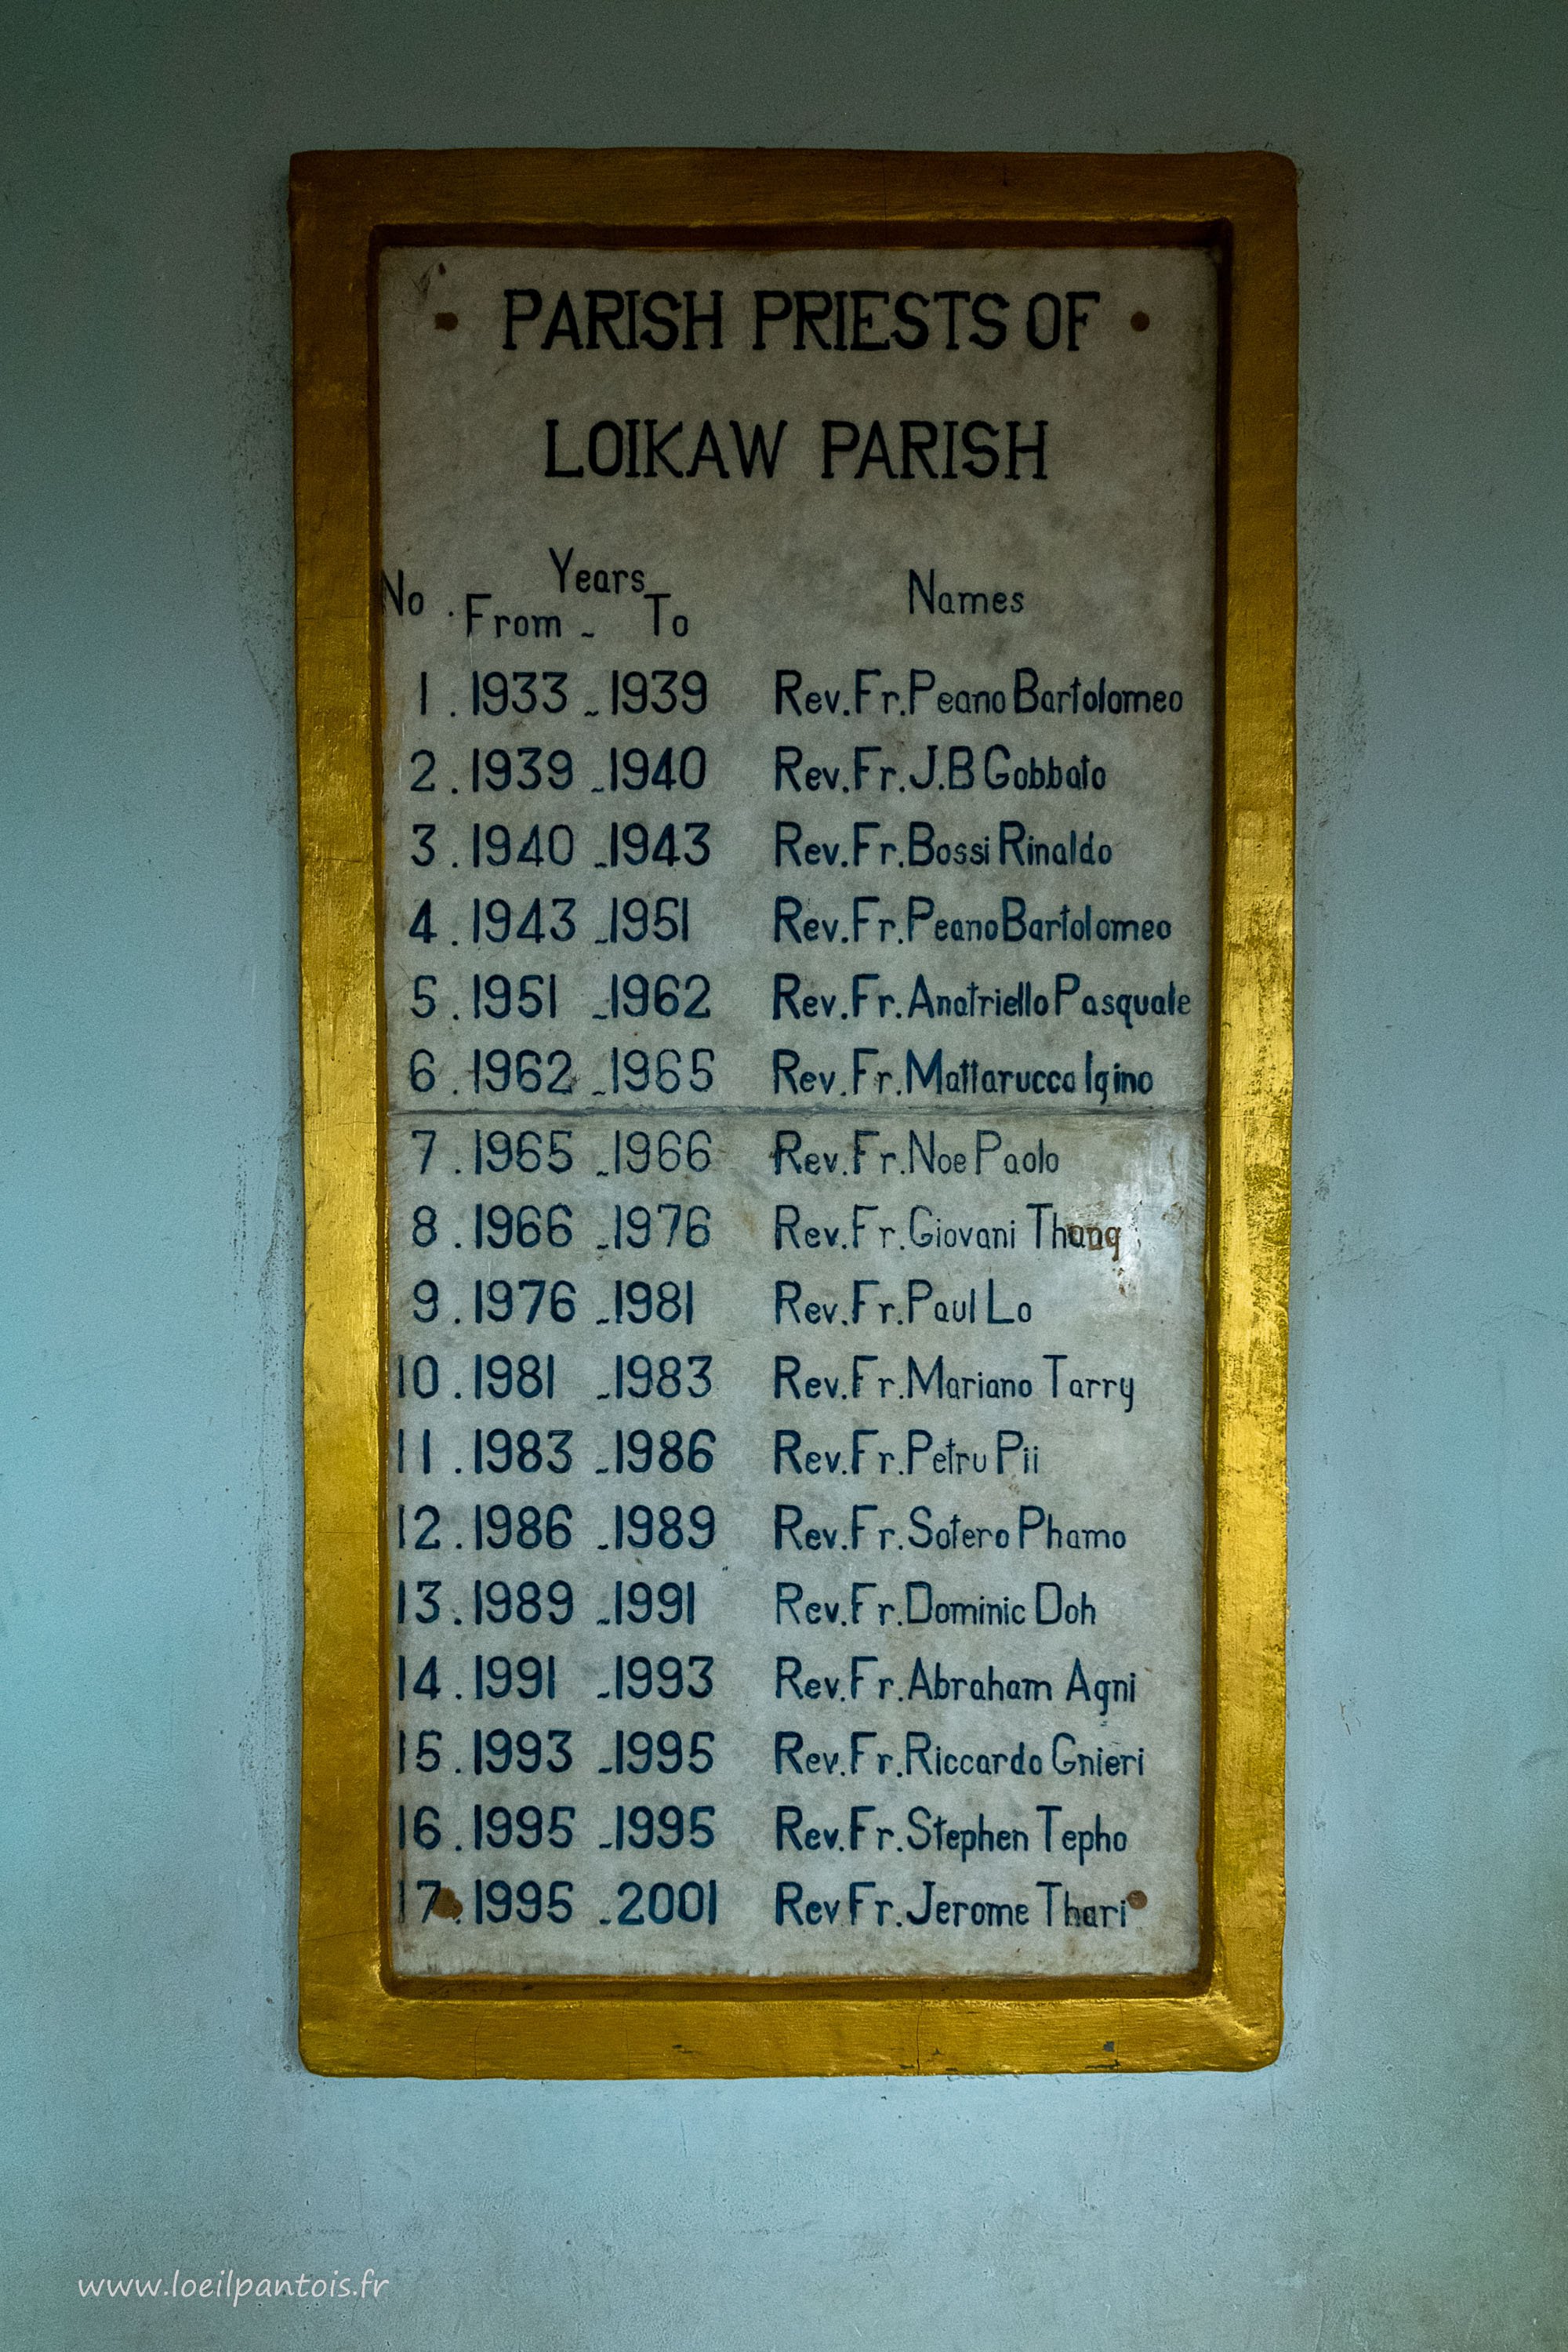 PARISH PRIESTS OF
LOIKAW PARISH
Years
No . From - To Names
1 . 1933 - 1939 Rev.Fr.Peano Bartolomeo
2 . 1939 - 1940 Rev.Fr.J.B Gobbato
3 . 1940 - 1943 Rev.Fr.Bossi Rinaldo
4 . 1943 - 1951 Rev.Fr.Peano Bartolomeo
5 . 1951 - 1962 Rev.Fr.Anatriello Pasquale
6 . 1962 - 1965 Rev.Fr.Mattarucco Igino
7 . 1965 - 1966 Rev.Fr.Noe Paolo
8 . 1966 - 1976 Rev.Fr.Giovani Thang
9 . 1976 - 1981 Rev.Fr.Paul Lo
10 . 1981 - 1983 Rev.Fr.Mariano Tarry
11 . 1983 - 1986 Rev.Fr.Petru Pii
12 . 1986 - 1989 Rev.Fr.Sotero Phamo
13 . 1989 - 1991 Rev.Fr.Dominic Doh
14 . 1991 - 1993 Rev.Fr.Abraham Agni
15 . 1993 - 1995 Rev.Fr.Riccardo Gnieri
16 . 1995 - 1995 Rev.Fr.Stephen Tepho
17 . 1995 - 2001 Rev Fr.Jerome Thari
www.loeilpantois.fr